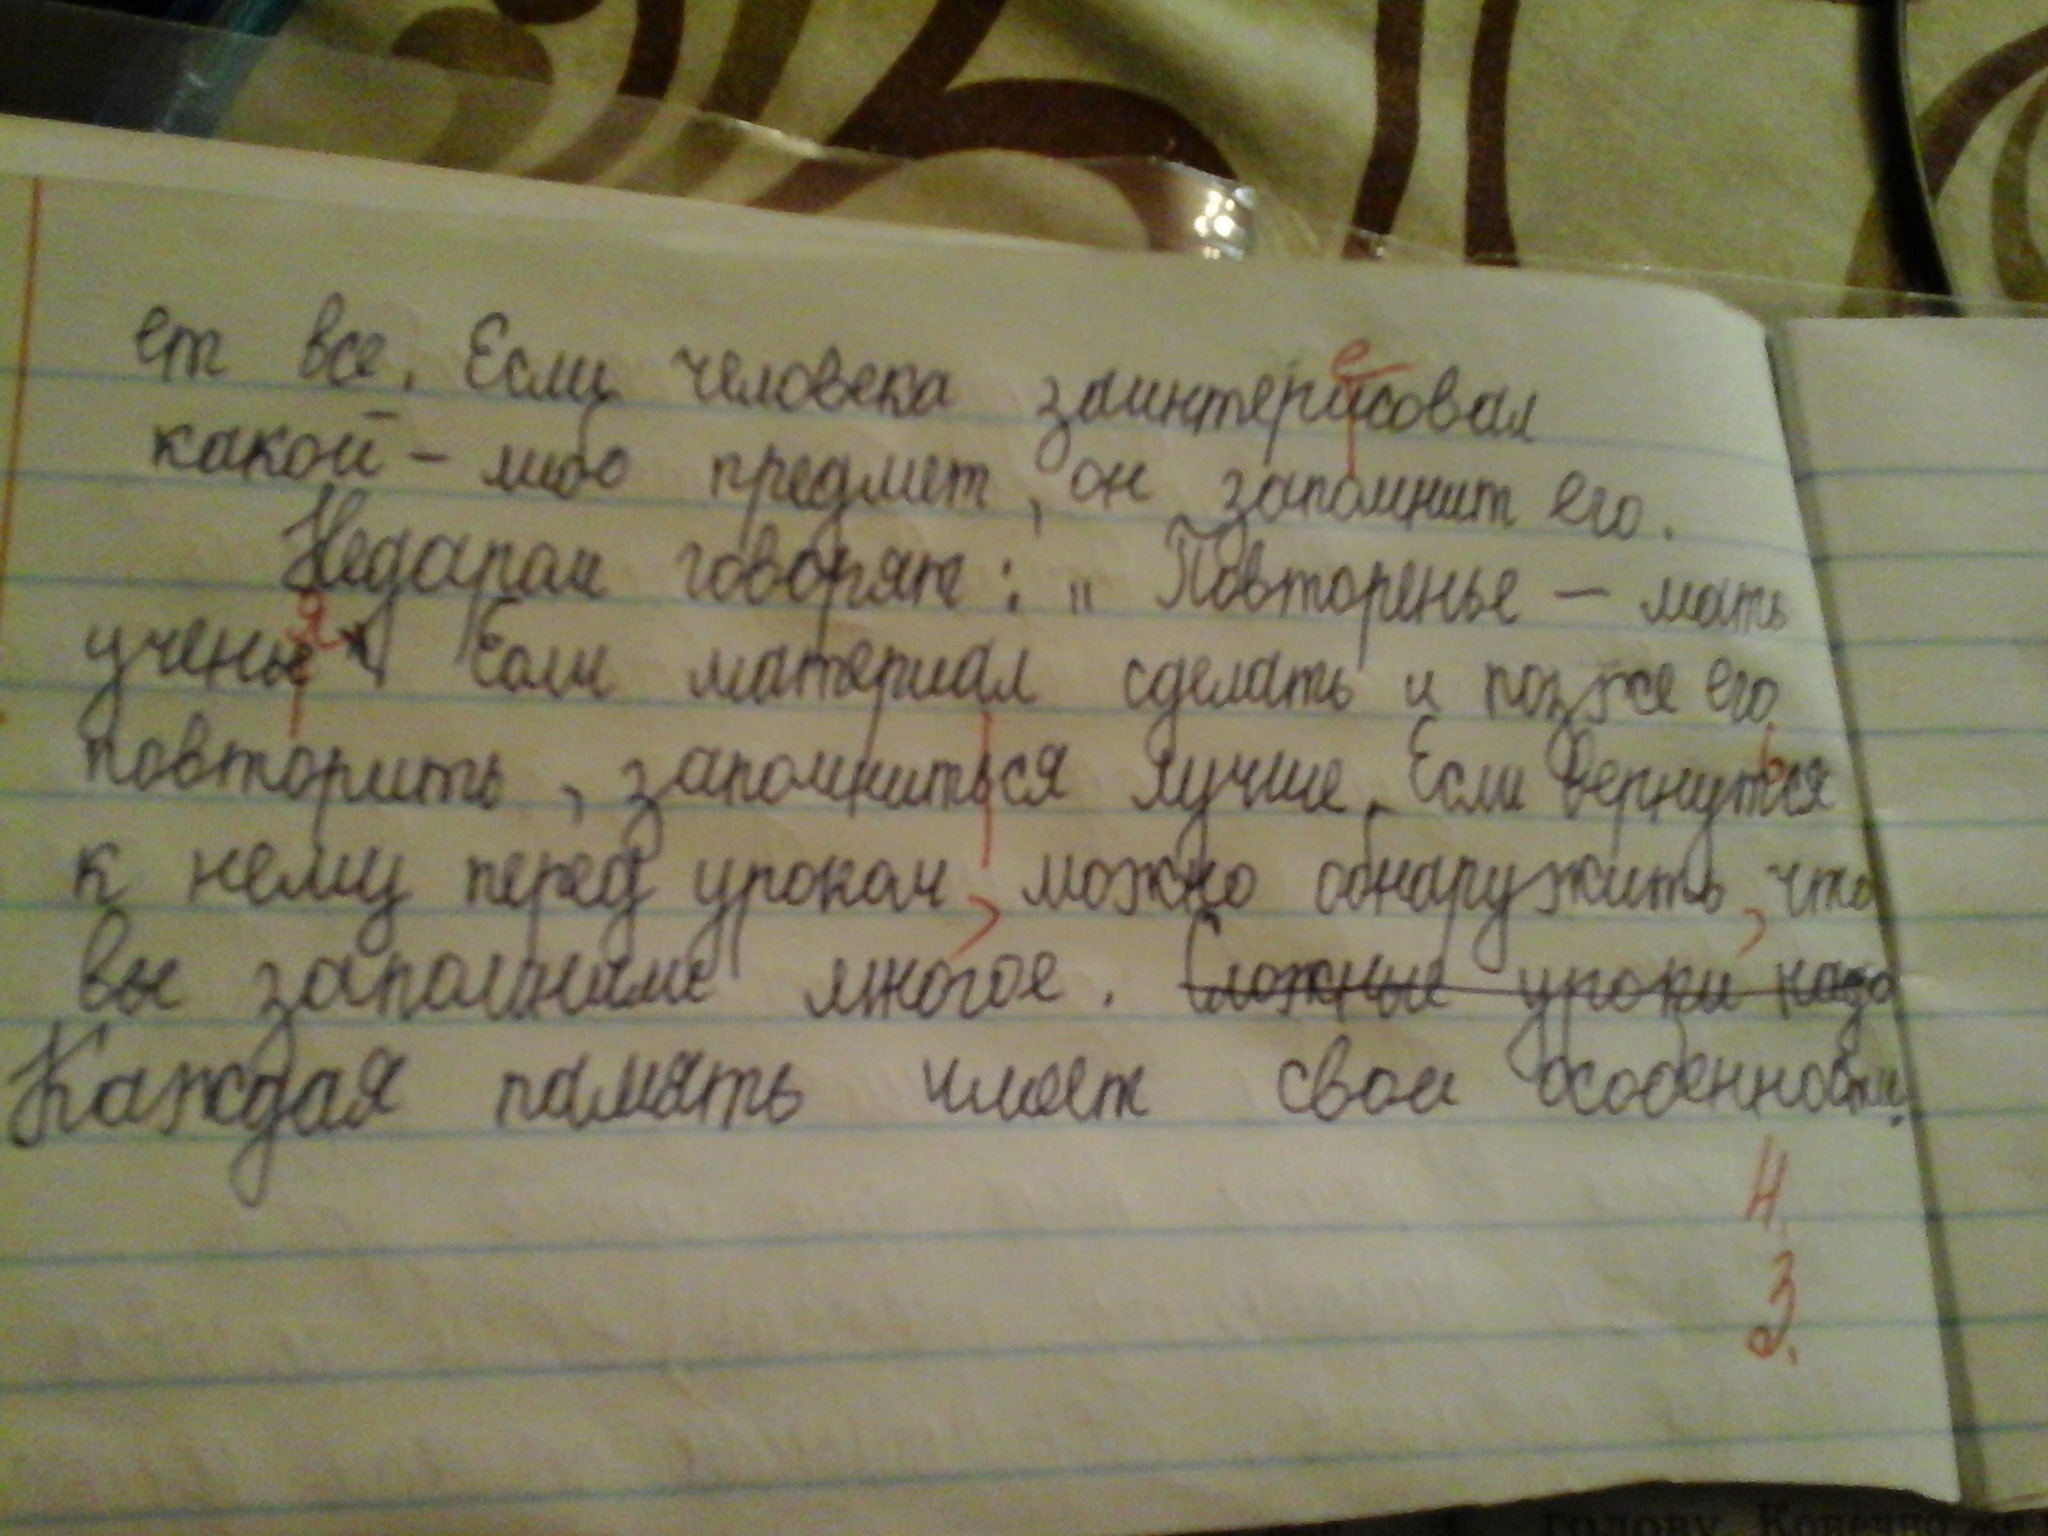 ет все. Если человека заинтерисовал
какой - либо предмет, он запомнит его.
Недаром говорят: „ Повторенье – мать
ученье“. Если материал сделать и позже его
повторить, запомниться лучше. Если вернутся
к нему перед уроком, можно обнаружить, что
вы запомнили многое. Сложные уроки надо
Каждая память имеет свои особенности.
4.
3.
голову. Конечно